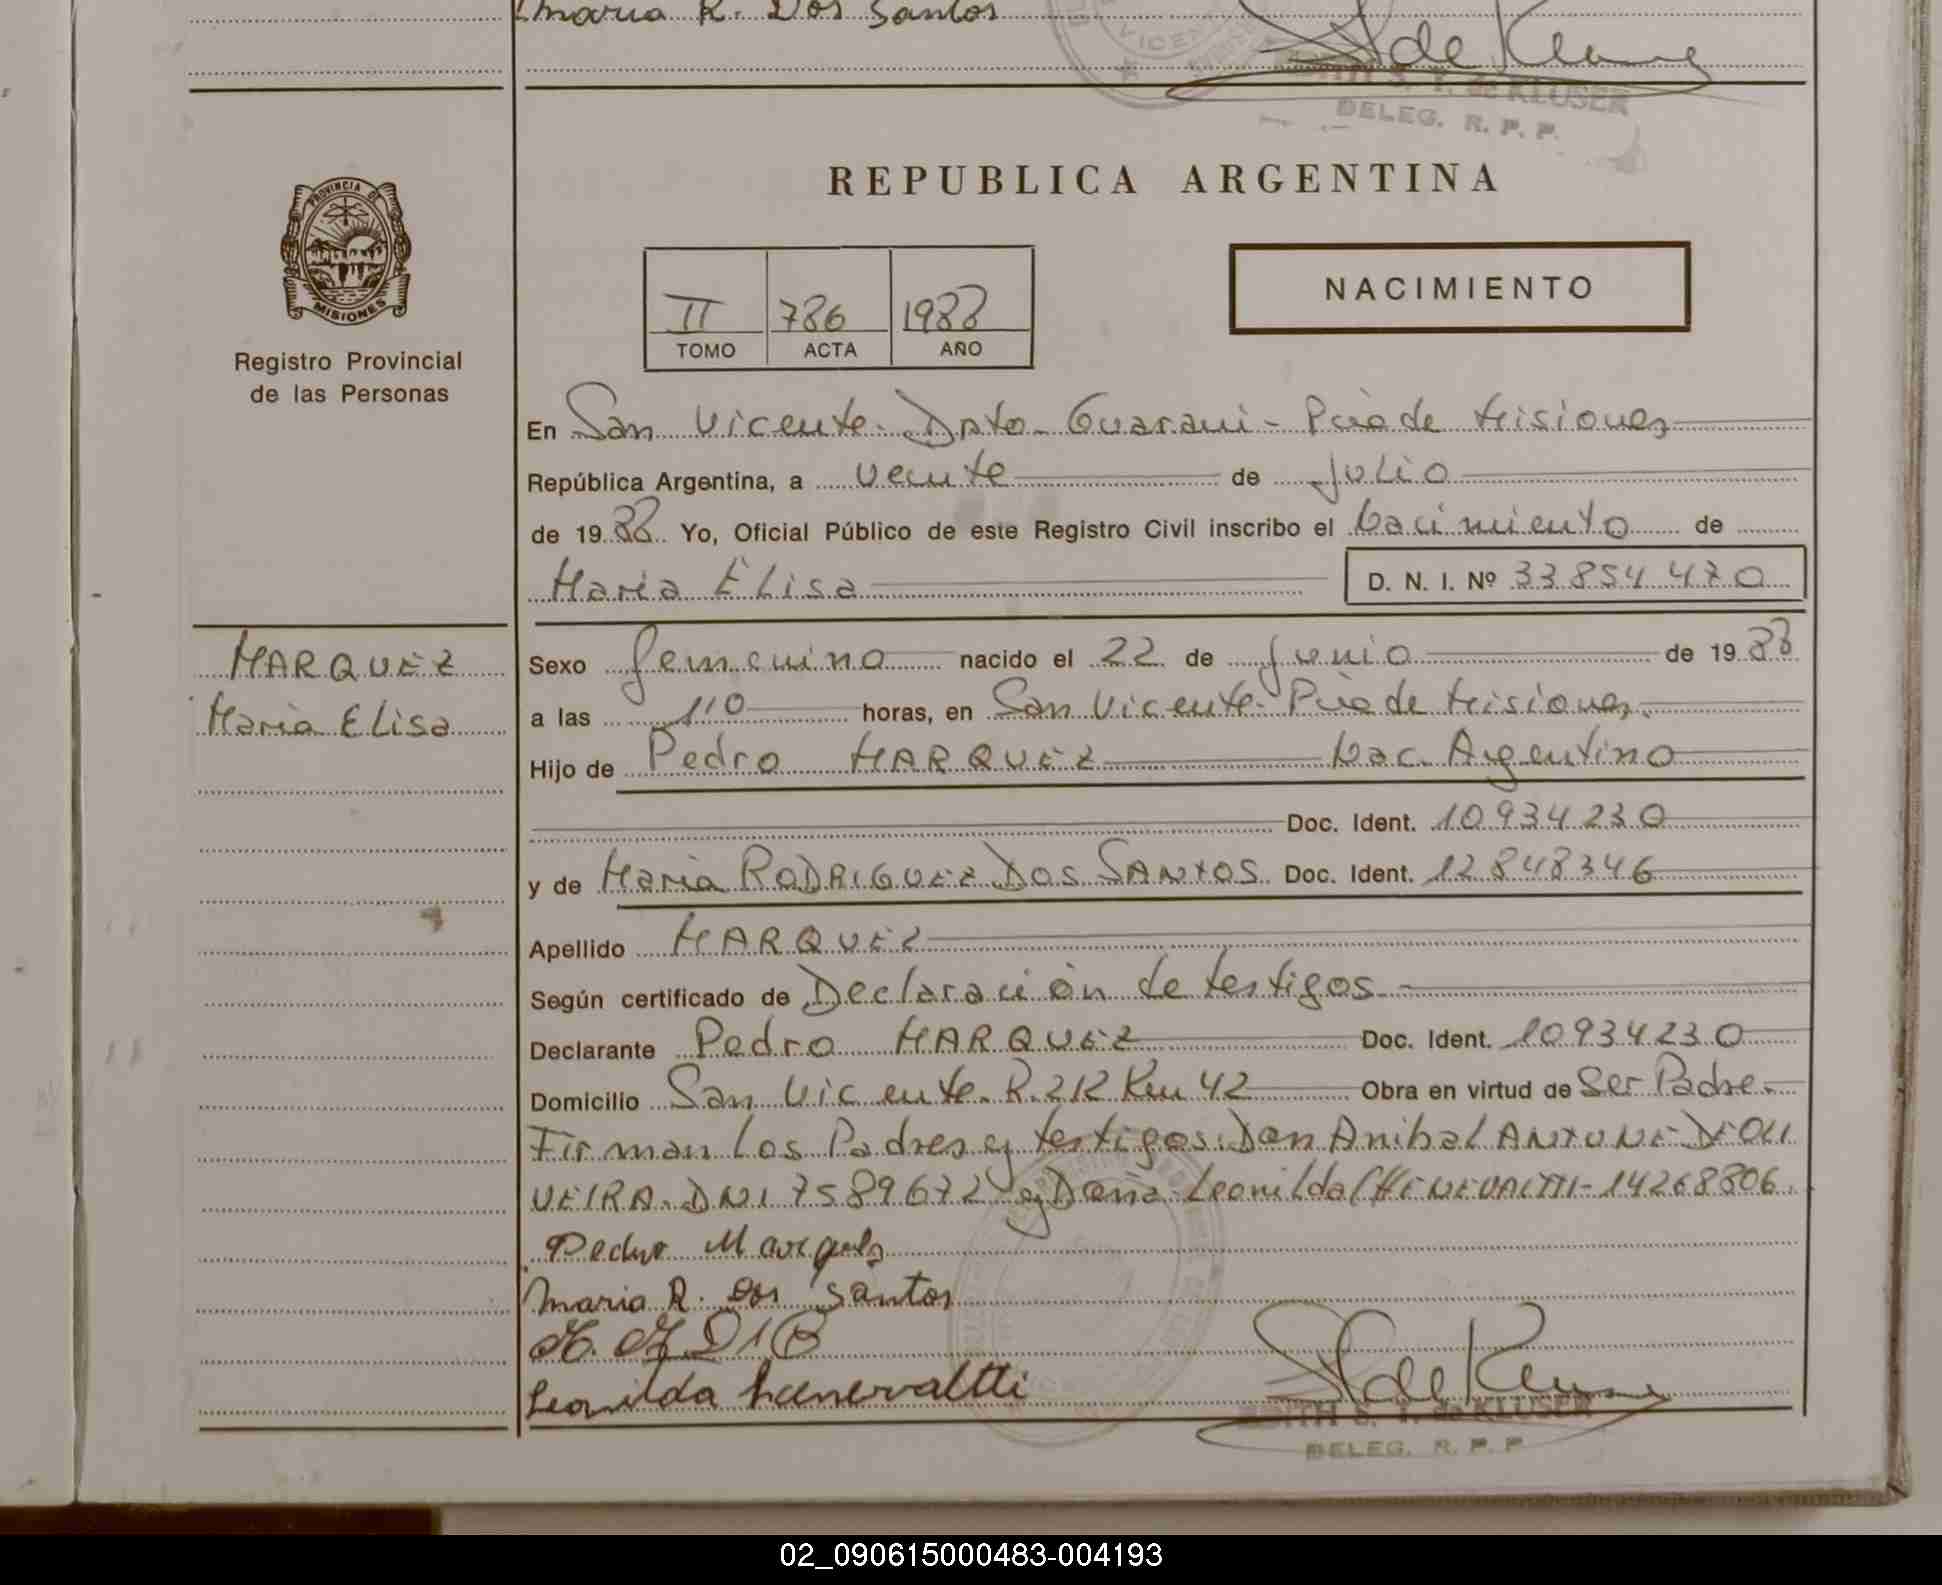 Maria R. Dos Santos
VICEN
S. T. de KLUSER
DELEG. R. P. P.
REPUBLICA ARGENTINA
PROVINCIA DE
MISIONES
Registro Provincial
de las Personas
II 786 1988
TOMO ACTA AÑO
NACIMIENTO
En San Vicente - Dpto. Guarani - Pcia de Misiones
República Argentina, a veinte de Julio
de 1988 Yo, Oficial Público de este Registro Civil inscribo el Nacimiento de
Maria Elisa D. N. I. Nº 33854470
MARQUEZ
Maria Elisa
Sexo femenino nacido el 22 de Junio de 1988
a las 1,10 horas, en San Vicente - Pcia de Misiones.
Hijo de Pedro MARQUEZ Nac. Argentino
Doc. Ident. 10934230
y de Maria RODRIGUEZ DOS SANTOS Doc. Ident. 12848346
Apellido MARQUEZ
Según certificado de Declaración de testigos
Declarante Pedro MARQUEZ Doc. Ident. 10934230
Domicilio San Vicente. R. 212 Km 42 Obra en virtud de Ser Padre.
Firman Los Padres y testigos. Don Anibal ANTUNE DE OLI
VEIRA. DNI 7589672 y Doña Leonilda CHENEVALTTI - 14268806.
Pedro Marques
Maria R. Dos Santos
Leonilda hanervaltti
S. T. de KLUSER
DELEG. R. P. P
02_090615000483-004193